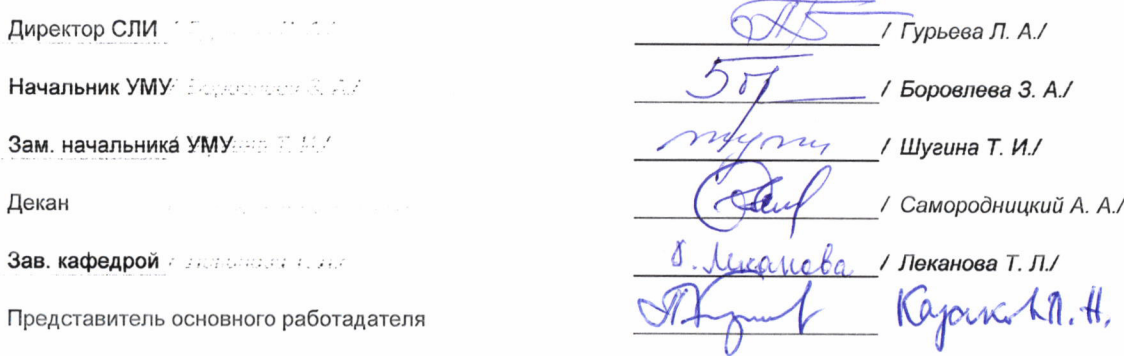 Директор СЛИ / Гурьева Л. А./
Начальник УМУ / Боровлева З. А./
Зам. начальника УМУ / Шугина Т. И./
Декан / Самородницкий А. А./
Зав. кафедрой Леканова / Леканова Т. Л./
Представитель основного работадателя П. Н.